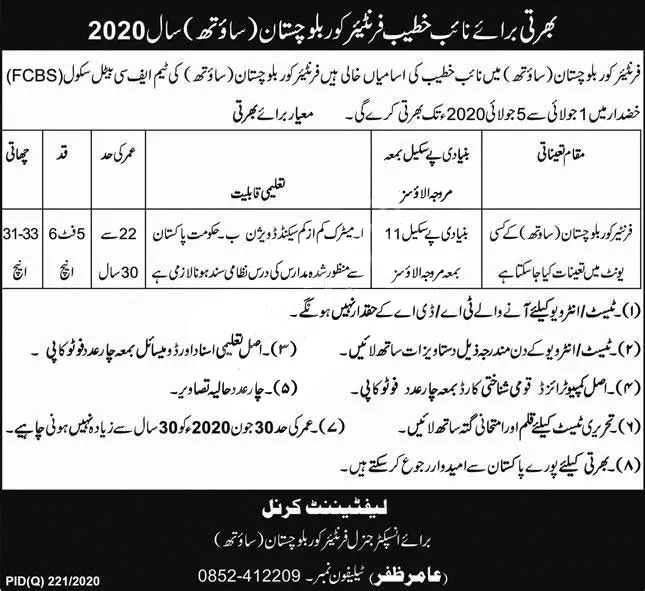 بھرتی برائے نائب خطیب فرنٹیئر کور بلوچستان (ساؤتھ) سال 2020
فرنٹیئر کور بلوچستان (ساؤتھ) میں نائب خطیب کی اسامیاں خالی ہیں فرنٹیئر کور بلوچستان (ساؤتھ) کی ٹیم ایف سی بیٹل سکول (FCBS)
خضدار میں 1 جولائی سے 5 جولائی 2020ء تک بھرتی کرے گی۔ معیار برائے بھرتی
مقام تعیناتی
بنیادی پے سکیل بمعہ
مروجہ الاؤسز
تعلیمی قابلیت
عمر کی حد
قد
چھاتی
فرنٹیر کور بلوچستان (ساؤتھ) کے کسی
یونٹ میں تعینات کیا جا سکتا ہے
بنیادی پے سکیل 11
بمعہ مروجہ الاؤسز
ا۔ میٹرک کم از کم سیکنڈ ڈویژن ب۔ حکومت پاکستان
سے منظور شدہ مدارس کی درس نظامی سند ہونا لازمی ہے
22 سے
30 سال
5 فٹ 6
انچ
31-33
انچ
(۱)۔ ٹیسٹ/انٹرویو کیلئے آنے والے ٹی اے/ڈی اے کے حقدار نہیں ہونگے۔
(۲)۔ ٹیسٹ/انٹرویو کے دن مندرجہ ذیل دستاویزات ساتھ لائیں۔ (۳)۔ اصل تعلیمی اسناد اور ڈومیسائل بمعہ چار عدد فوٹو کاپی۔
(۴)۔ اصل کمپیوٹرائزڈ قومی شناختی کارڈ بمعہ چار عدد فوٹو کاپی۔ (۵)۔ چار عدد حالیہ تصاویر۔
(۶)۔ تحریری ٹیسٹ کیلئے قلم اور امتحانی گتہ ساتھ لائیں۔ (۷)۔ عمر کی حد 30 جون 2020ء کو 30 سال سے زیادہ نہیں ہونی چاہیے۔
(۸)۔ بھرتی کیلئے پورے پاکستان سے امیدوار رجوع کر سکتے ہیں۔
لیفٹیننٹ کرنل
برائے انسپکٹر جنرل فرنٹیئر کور بلوچستان (ساؤتھ)
(عامر ظفر) ٹیلیفون نمبر۔ 0852-412209
PID(Q) 221/2020